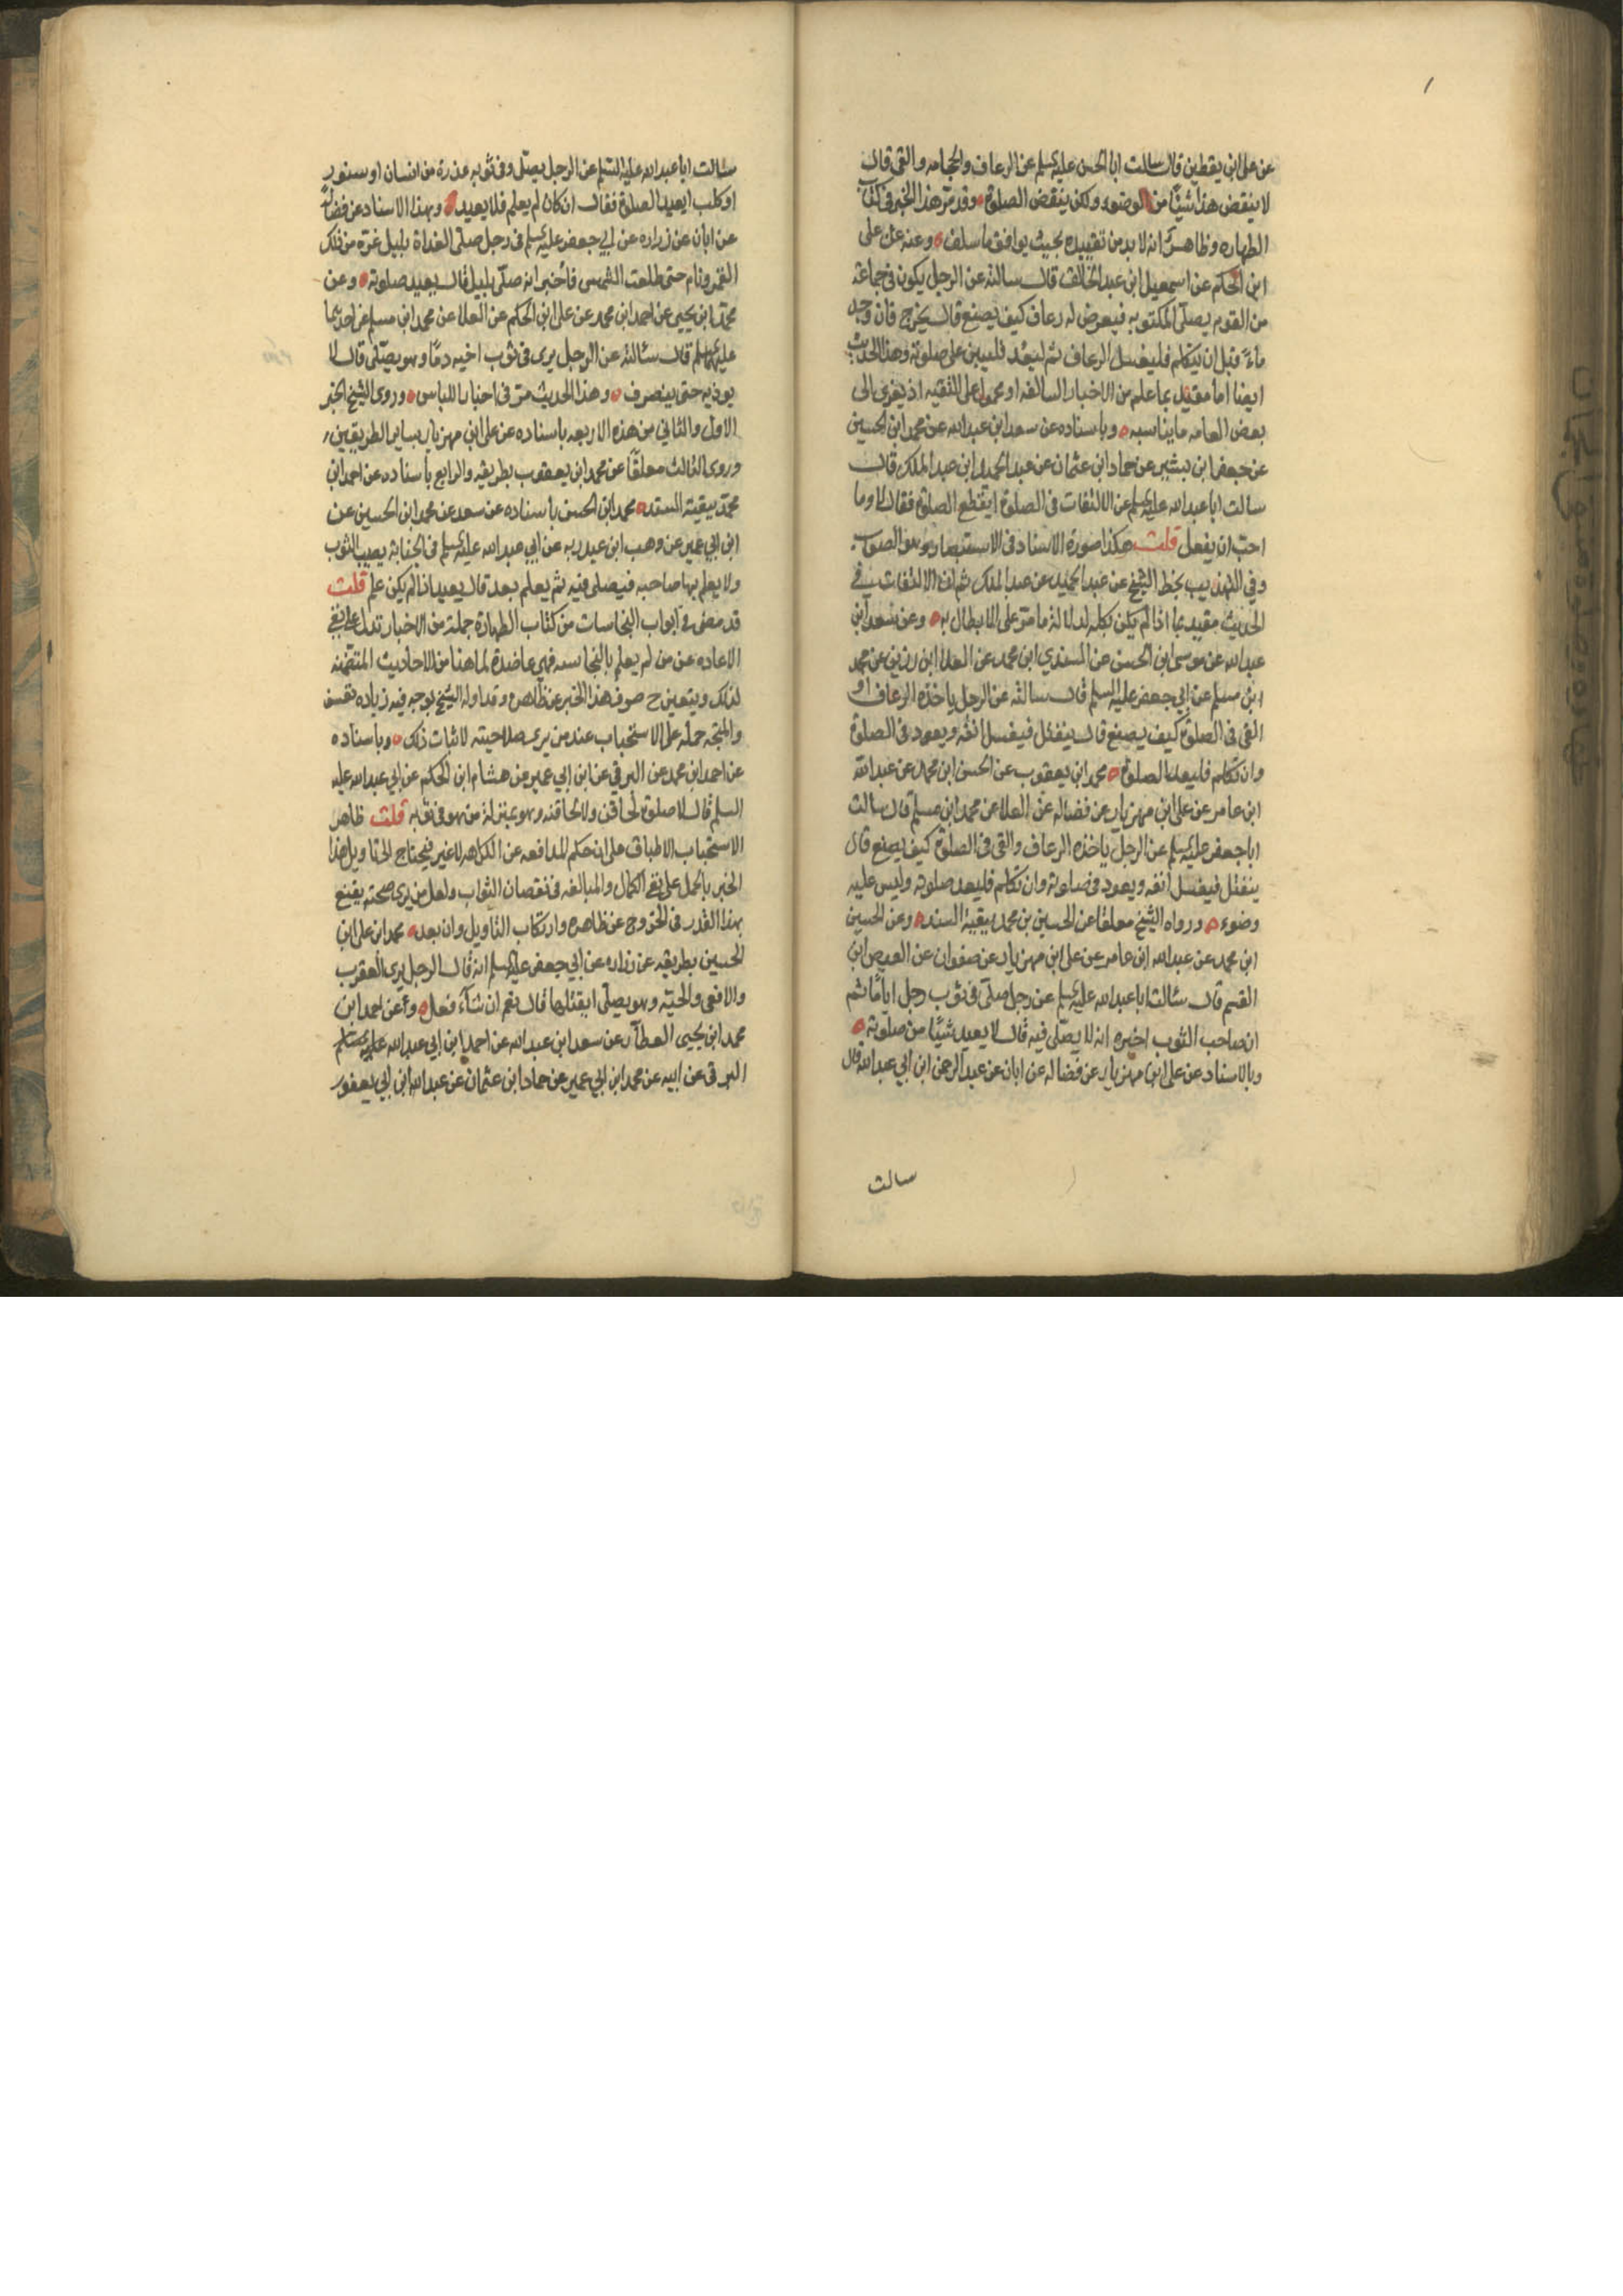 عن على ابن يقطين قال سالت ابا الحسن عليه السلم عن الرعاف والحجامه والقى قال
لا ينقض هذا شيئا من الوضوء ولكن ينقض الصلوة وقد مر هذا الخبر فى كتاب
الطهاره وظاهر انه لا بد من تقييده بحيث يوافق ما سلف وعنه عن على
ابن الحكم عن اسمعيل ابن عبد الخالق قال سالته عن الرجل يكون فى جماعة
من القوم يصلى المكتوبه فيعرض له رعاف كيف يصنع قال يخرج فان وجد
ماءً قبل ان يتكلم فليغسل الرعاف ثم ليعد فليبن على صلوته وهذا الحديث
ايضا اما مقيد بما علم من الاخبار السالفه او محمول على التقيه اذ يعزى الى
بعض العامه ما يناسبه وباسناده عن سعد ابن عبد الله عن محمد ابن الحسين
عن جعفر ابن بشير عن حماد ابن عثمان عن عبد الحميد ابن عبد الملك قال
سالت ابا عبد الله عليه السلم عن الالتفات فى الصلوة ايقطع الصلوة فقال لا وما
احب ان يفعل قلت هكذا صورة الاسناد فى الاستبصار وهو الصواب
وفي التهذيب بخط الشيخ عن عبد الحميد عن عبد الملك ثم ان الالتفات فى
الحديث مقيد بما اذا لم يكن بكله لدلالة ما مر على الابطال به وعن سعد ابن
عبد الله عن موسى ابن الحسن عن السندي ابن محمد عن العلا ابن رزين عن محمد
ابن مسلم عن ابي جعفر عليه السلم قال سالته عن الرجل ياخذه الرعاف او
القى فى الصلوة كيف يصنع قال ينفتل فيغسل انفه ويعود فى الصلوة
وان تكلم فليعد الصلوة محمد ابن يعقوب عن الحسن ابن محمد عن عبد الله
ابن عامر عن على ابن مهزيار عن فضاله عن العلا عن محمد ابن مسلم قال سالت
ابا جعفر عليه السلم عن الرجل ياخذه الرعاف والقى فى الصلوة كيف يصنع قال
ينفتل فيغسل انفه ويعود فى صلوته وان تكلم فليعد صلوته وليس عليه
وضوء ورواه الشيخ معلقا عن الحسين بن محمد ببقية السند وعن الحسين
ابن محمد عن عبد الله ابن عامر عن على ابن مهزيار عن صفوان عن العيص ابن
القسم قال سئالت ابا عبد الله عليه السلم عن رجل صلى فى ثوب رجل اياما ثم
ان صاحب الثوب اخبره انه لا يصلى فيه قال لا يعيد شيئا من صلوته
وبالاسناد عن على ابن مهزيار عن فضاله عن ابان عن عبد الرحمن ابن ابي عبد الله قال
سالت
سئالت ابا عبد الله عليه السلم عن الرجل يصلى وفى ثوبه عذرة من انسان او سنور
او كلب ايعيد الصلوة فقال ان كان لم يعلم فلا يعيد وبهذا الاسناد عن فضاله
عن ابان عن زراره عن ابي جعفر عليه السلم فى رجل صلى الغداة بليل غره من ذلك
القمر ونام حتى طلعت الشمس فاخبر انه صلى بليل قال يعيد صلوته وعن
محمد ابن يحيى عن احمد ابن محمد عن على ابن الحكم عن العلا عن محمد ابن مسلم عن احدهما
عليهما السلم قال سئالته عن الرجل يرى فى ثوب اخيه دما وهو يصلى قال لا
يوذيه حتى ينصرف وهذا الحديث مر فى اخبار اللباس وروى الشيخ الخبر
الاول والثاني من هذه الاربعه باسناده عن على ابن مهزيار بساير الطريقين
وروى الثالث معلقا عن محمد ابن يعقوب بطريقه والرابع باسناده عن احمد ابن
محمد ببقية السند محمد ابن الحسن باسناده عن سعد عن محمد ابن الحسين عن
ابن ابي عمير عن وهب ابن عبد ربه عن ابي عبد الله عليه السلم فى الجنابة يصيب الثوب
ولا يعلم بها صاحبه فيصلى فيه ثم يعلم بعد قال يعيد اذا لم يكن علم قلت
قد مضى فى ابواب النجاسات من كتاب الطهارة جملة من الاخبار تدل على نفى
الاعاده عن من لم يعلم بالنجاسه فهى عاضدة لما هنا من الاحاديث المتضمنه
لذلك ويتعين ح صرف هذا الخبر عن ظاهره وقد اوله الشيخ بوجه فيه زياده تعسف
والمتجه حمله على الاستحباب عند من يرى صلاحيته لاثبات ذلك وباسناده
عن احمد ابن محمد عن البرقي عن ابن ابي عمير عن هشام ابن الحكم عن ابي عبد الله عليه
السلم قال لا صلوة لحاقن ولا لحاقنه وهو بمنزلة من هو فى ثوبه قلت ظاهر
الاستحباب الاطباق على ان حكم المدافعه عن الكراهه لا غير فيحتاج الى تاويل هذا
الخبر بالحمل على نفى الكمال والمبالغه فى نقصان الثواب ولعل من يرى صحته يقنع
بهذا القدر فى الخروج عن ظاهره وارتكاب التاويل وان بعد محمد ابن على ابن
الحسين بطريقه عن زراره عن ابي جعفر عليه السلم انه قال الرجل يرى العقرب
والافعى والحيه وهو يصلى ايقتلها قال نعم ان شاء فعل وعن احمد ابن
محمد ابن يحيى العطار عن سعد ابن عبد الله عن احمد ابن ابي عبد الله
البرقى عن ابيه عن محمد ابن ابي عمير عن حماد ابن عثمان عن عبد الله ابن ابي يعفور